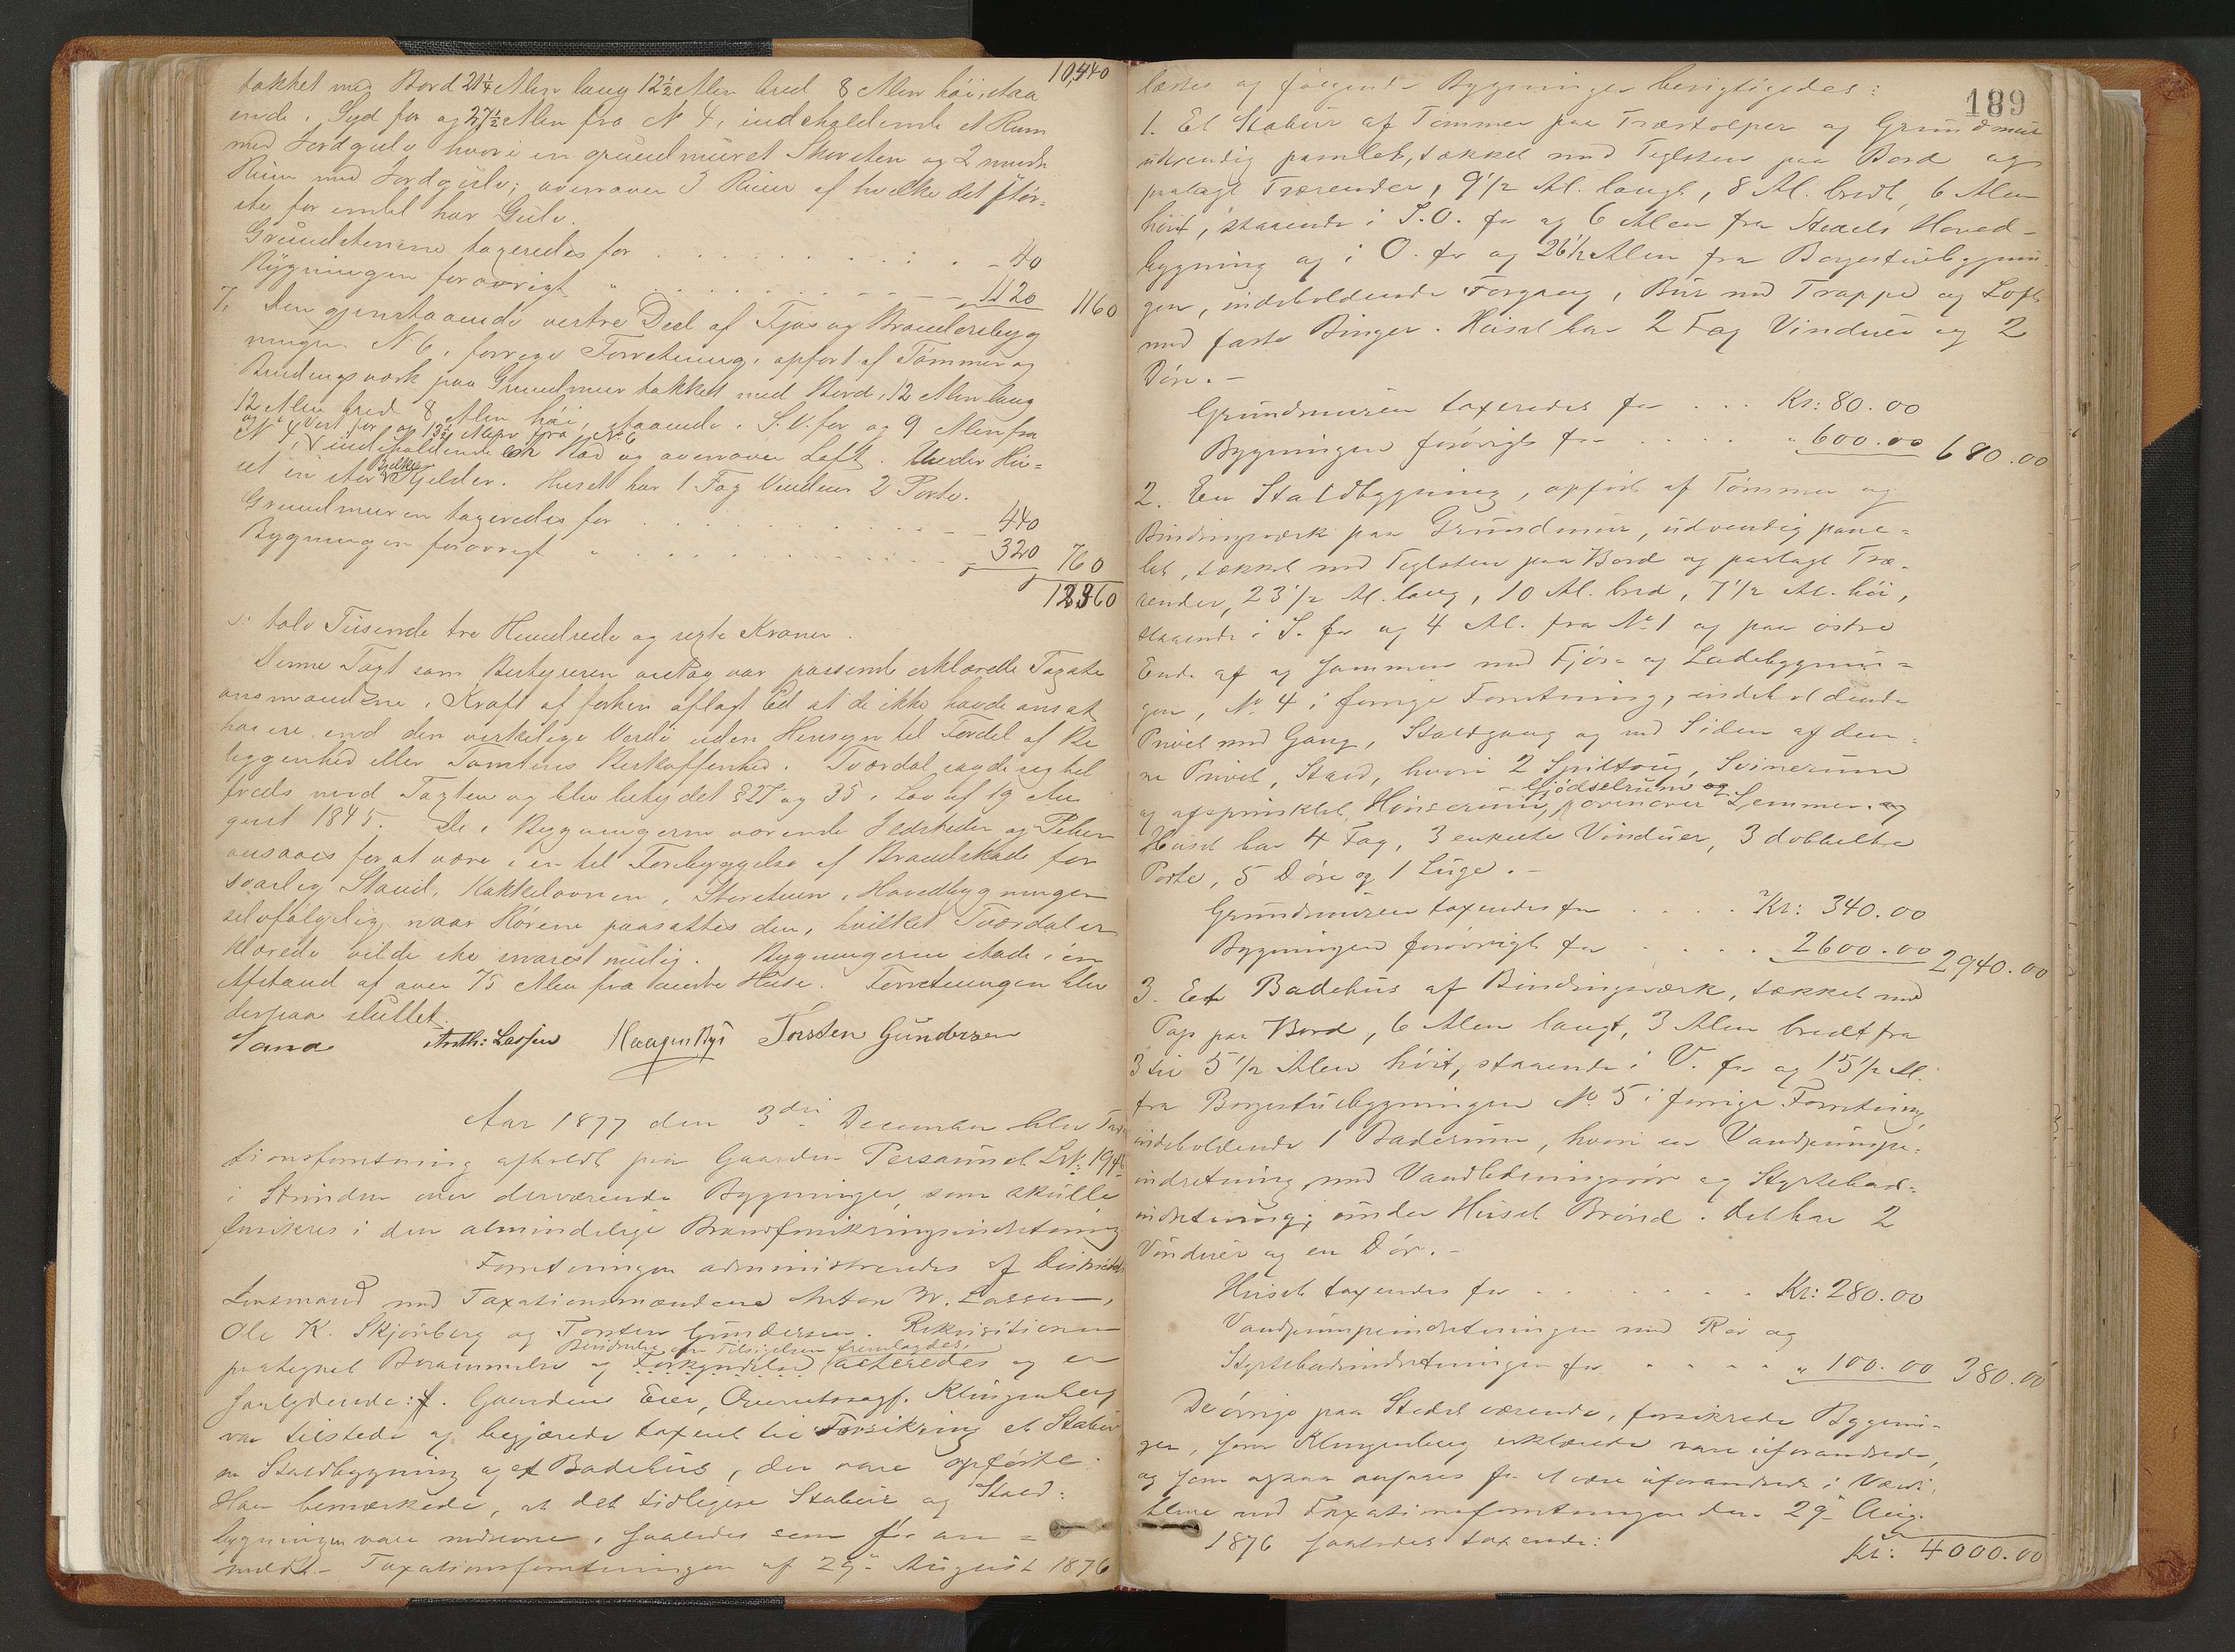 10,440
takket med Bord 21¼ Alen lang 12½ Alen bred 8 Alen høi, staa
ende i Syd for og 27½ Alen fra N 4, indeholdende et Rum
med Jordgulv hvori en grundmuret Skorsten og 2 mindre
Rum med Jordgulv; ovenover 3 Rum af hvilke det stør=
ste for endel har Gulv.
Grundstenene taxeredes for . . . . . . . . . . - 40
Bygningen forøvrigt " . . . . . . . . . - 1120 1160
7, Den gjenstaaende vestre Deel af Fjøs og Brændersbyg
ningen N 6, forrige Forretning, opført af Tømmer og
Bindingsværk paa Grundmur takket med Bord, 12 Alen lang
12 Alen bred 8 Alen høi, staaende i S.V. for og 9 Alen fra
og i Vest for og 13½ Alen fra N 6
N 4, indeholdende en Lad og ovenover Loft. Under Hu=
set en stor Kjelder. Huset har 1 Fag Vinduer 2 Porte.
Grundmuren taxeredes for . . . . . . . . . - 440
Bygningen forøvrigt " . . . . . . . . . - 320 760
12360
s: tolv Tusende tre Hundrede og sexti Kroner.
Denne Taxt som Bestyreren antog var passende erklærede Taxations
mændene i Kraft af forhen aflagt Ed at de ikke havde ansat
høiere end den virkelige Værdi uden Hensyn til Fordel af Be
liggenhed eller Tomtens Beskaffenhed. Tværdal sagde sig til
freds med Taxten og blev betydet § 27 og 35 i Lov af 19 Au
gust 1845. De i Bygningerne værende Ildsteder og Piber
ansaaes for at være i en til Forebyggelse af Brandskade for
svarlig Stand. Kakkelovnen i Storstuen i Hovedbygningen
selvfølgelig naar Rørene paasattes den, hvilket Tværdal er
klærede vilde ske snarest mulig. Bygningerne stode i en
Afstand af over 75 Alen fra andre Huse. Forretningen blev
derpaa sluttet.
Sand Anth: Lassen Haagen Bye Torsten Gundersen
Aar 1877 den 3die December blev Taxa
tionsforretning afholdt paa Gaarden Persaunet Lsk: 194
i Strinden over derværende Bygninger, som skulle
forsikres i den almindelige Brandforsikringsindretning
Forretningen administreredes af Districtets
Lensmand med Taxationsmændene Anton W. Lassen,
Ole K. Skjønberg og Torsten Gundersen. Rekvisitionen
Bevidnelse om Tilsigelsen fremlagdes,
paategnet Berammelse og Forkyndelse acteredes og er
saalydende: f. Gaardens Eier, Overretssagf. Klingenberg
var tilstede og begjærede taxeret til Forsikring et Stabur
en Staldbygning og et Badehus, der vare opførte.
Han bemærkede, at det tidligere Stabur og Stald=
bygningen vare nedrevne, saaledes som før an=
meldt. Taxationsforretningen af 29de August 1876
189
læstes og følgende Bygninger besigtigedes:
1. Et Stabur af Tømmer paa Træstolper og Grundmur
udvendig panelet, tækket med Teglsten paa Bord og
paalagt Trærender, 9½ Al. langt, 8 Al. bredt, 6 Alen
høit, staaende i S.O. for og 6 Alen fra Stedets Hoved-
bygning og i O. for og 26½ Alen fra Borgestuebygnin
gen, indeholdende Forgang, Bur med Trappe og Loft
med faste Binger. Huset har 2 Fag Vinduer og 2
Døre. -
Grundmuren taxeredes for . . . Kr: 80.00
Bygningen forøvrigt for . . . . . " 600.00 680.00
2. En Staldbygning, opført af Tømmer og
Bindingsværk paa Grundmur, udvendig pane=
let, tækket med Teglsten paa Bord og paalagt Træ-
render, 23½ Al. lang, 10 Al. bred, 7½ Al. høi,
staaende i S. for og 4 Al. fra No 1 og paa østre
Ende af og sammen med Fjøs- og Ladebygnin=
gen, No 4 i forrige Forretning, indeholdende
Privet med Gang, Staldgang og ved Siden af den=
ne Privet, Stald, hvori 2 Spiltoug, Svinerum
Gjødselrum og
og afsprinklet Hønserum, ovenover Lemmer. og
Huset har 4 Fag, 3 enkelte Vinduer, 3 dobbelte
Porte, 5 Døre og 1 Luge. -
Grundmuren taxeredes for . . . . Kr: 340.00
Bygningen forøvrigt for . . . . . 2600.00 2940.00
3. Et Badehus af Bindingsværk, tækket med
Pap paa Bord, 6 Alen langt, 3 Alen bredt fra
3 til 5½ Alen høit, staaende i V. for og 15½ Al.
fra Borgestuebygningen No 5 i forrige Forretning,
indeholdende 1 Baderum, hvori en Vandpumpe=
indretning med Vandledningsrør og Styrtebad=
indretning; under Huset Brønd. Det har 2
Vinduer og en Dør. -
Huset taxeredes for . . . . . . . Kr: 280.00
Vandpumpeindretningen med Rør og
Styrtebadindretningen for . . . . . " 100.00 380.00
De øvrige paa Stedet værende, forsikrede Bygnin-
ger, som Klingenberg erklærede vare uforandrede,
og som ogsaa ansaaes for at være uforandrede i Værdi,
bleve ved Taxationsforretningen den 29de Aug.
1876 saaledes taxerede:
Kr: 4000.00